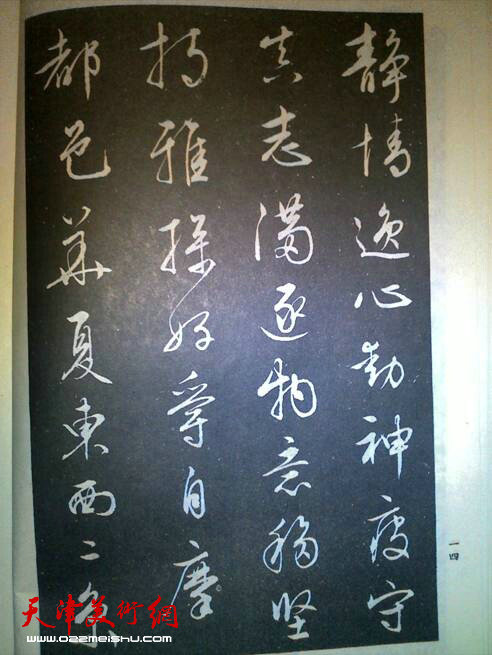 靜情逸心動神疲守
真志滿逐物意移堅
持雅操好爵自縻
都邑華夏東西二京
一四
天津美術網
www.022meishu.com